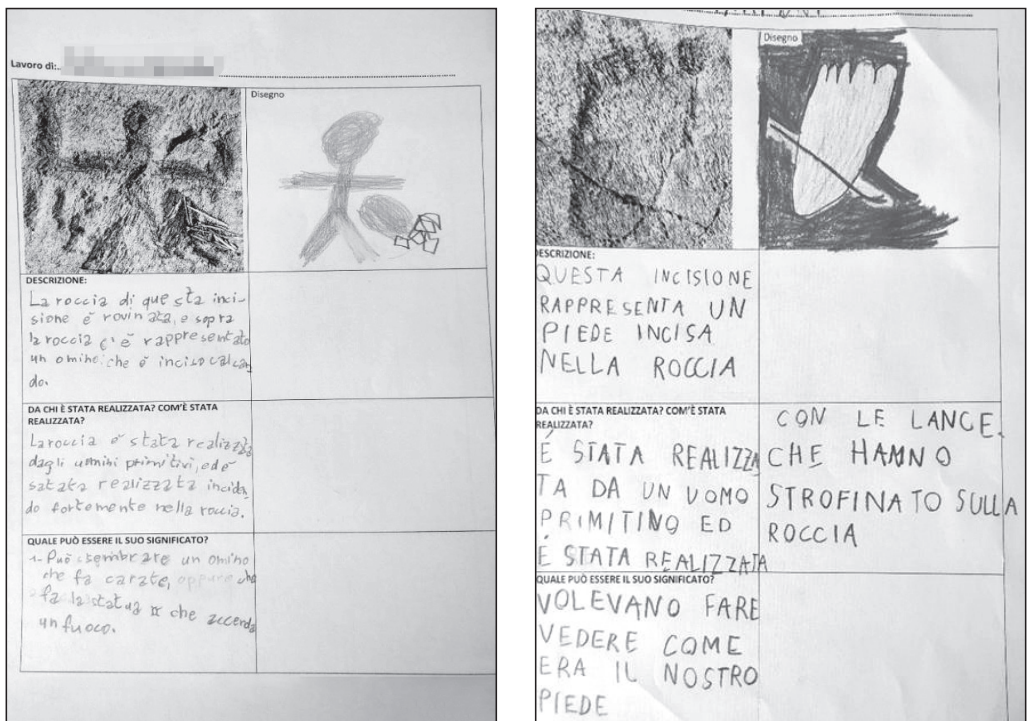 Lavoro di:
Disegno
DESCRIZIONE:
La roccia di questa inci-
sione è rovinata, e sopra
la roccia c'è rappresentato
un omino che è inciso calcan
do.
DA CHI È STATA REALIZZATA? COM'È STATA
REALIZZATA?
La roccia è stata realizza
dagli uomini primitivi, ed è
satata realizzata inciden
do fortemente nella roccia.
QUALE PUÒ ESSERE IL SUO SIGNIFICATO?
1- Può sembrare un omino
che fa carate, oppure che
fa la statua che accenda
un fuoco.
Disegno
DESCRIZIONE:
QUESTA INCISIONE
RAPPRESENTA UN
PIEDE INCISA
NELLA ROCCIA
DA CHI È STATA REALIZZATA? COM'È STATA
REALIZZATA?
É STATA REALIZZA
TA DA UN UOMO
PRIMITINO ED
É STATA REALIZZATA
CON LE LANCE.
CHE HANNO
STROFINATO SULLA
ROCCIA
QUALE PUÒ ESSERE IL SUO SIGNIFICATO?
VOLEVANO FARE
VEDERE COME
ERA IL NOSTRO
PIEDE